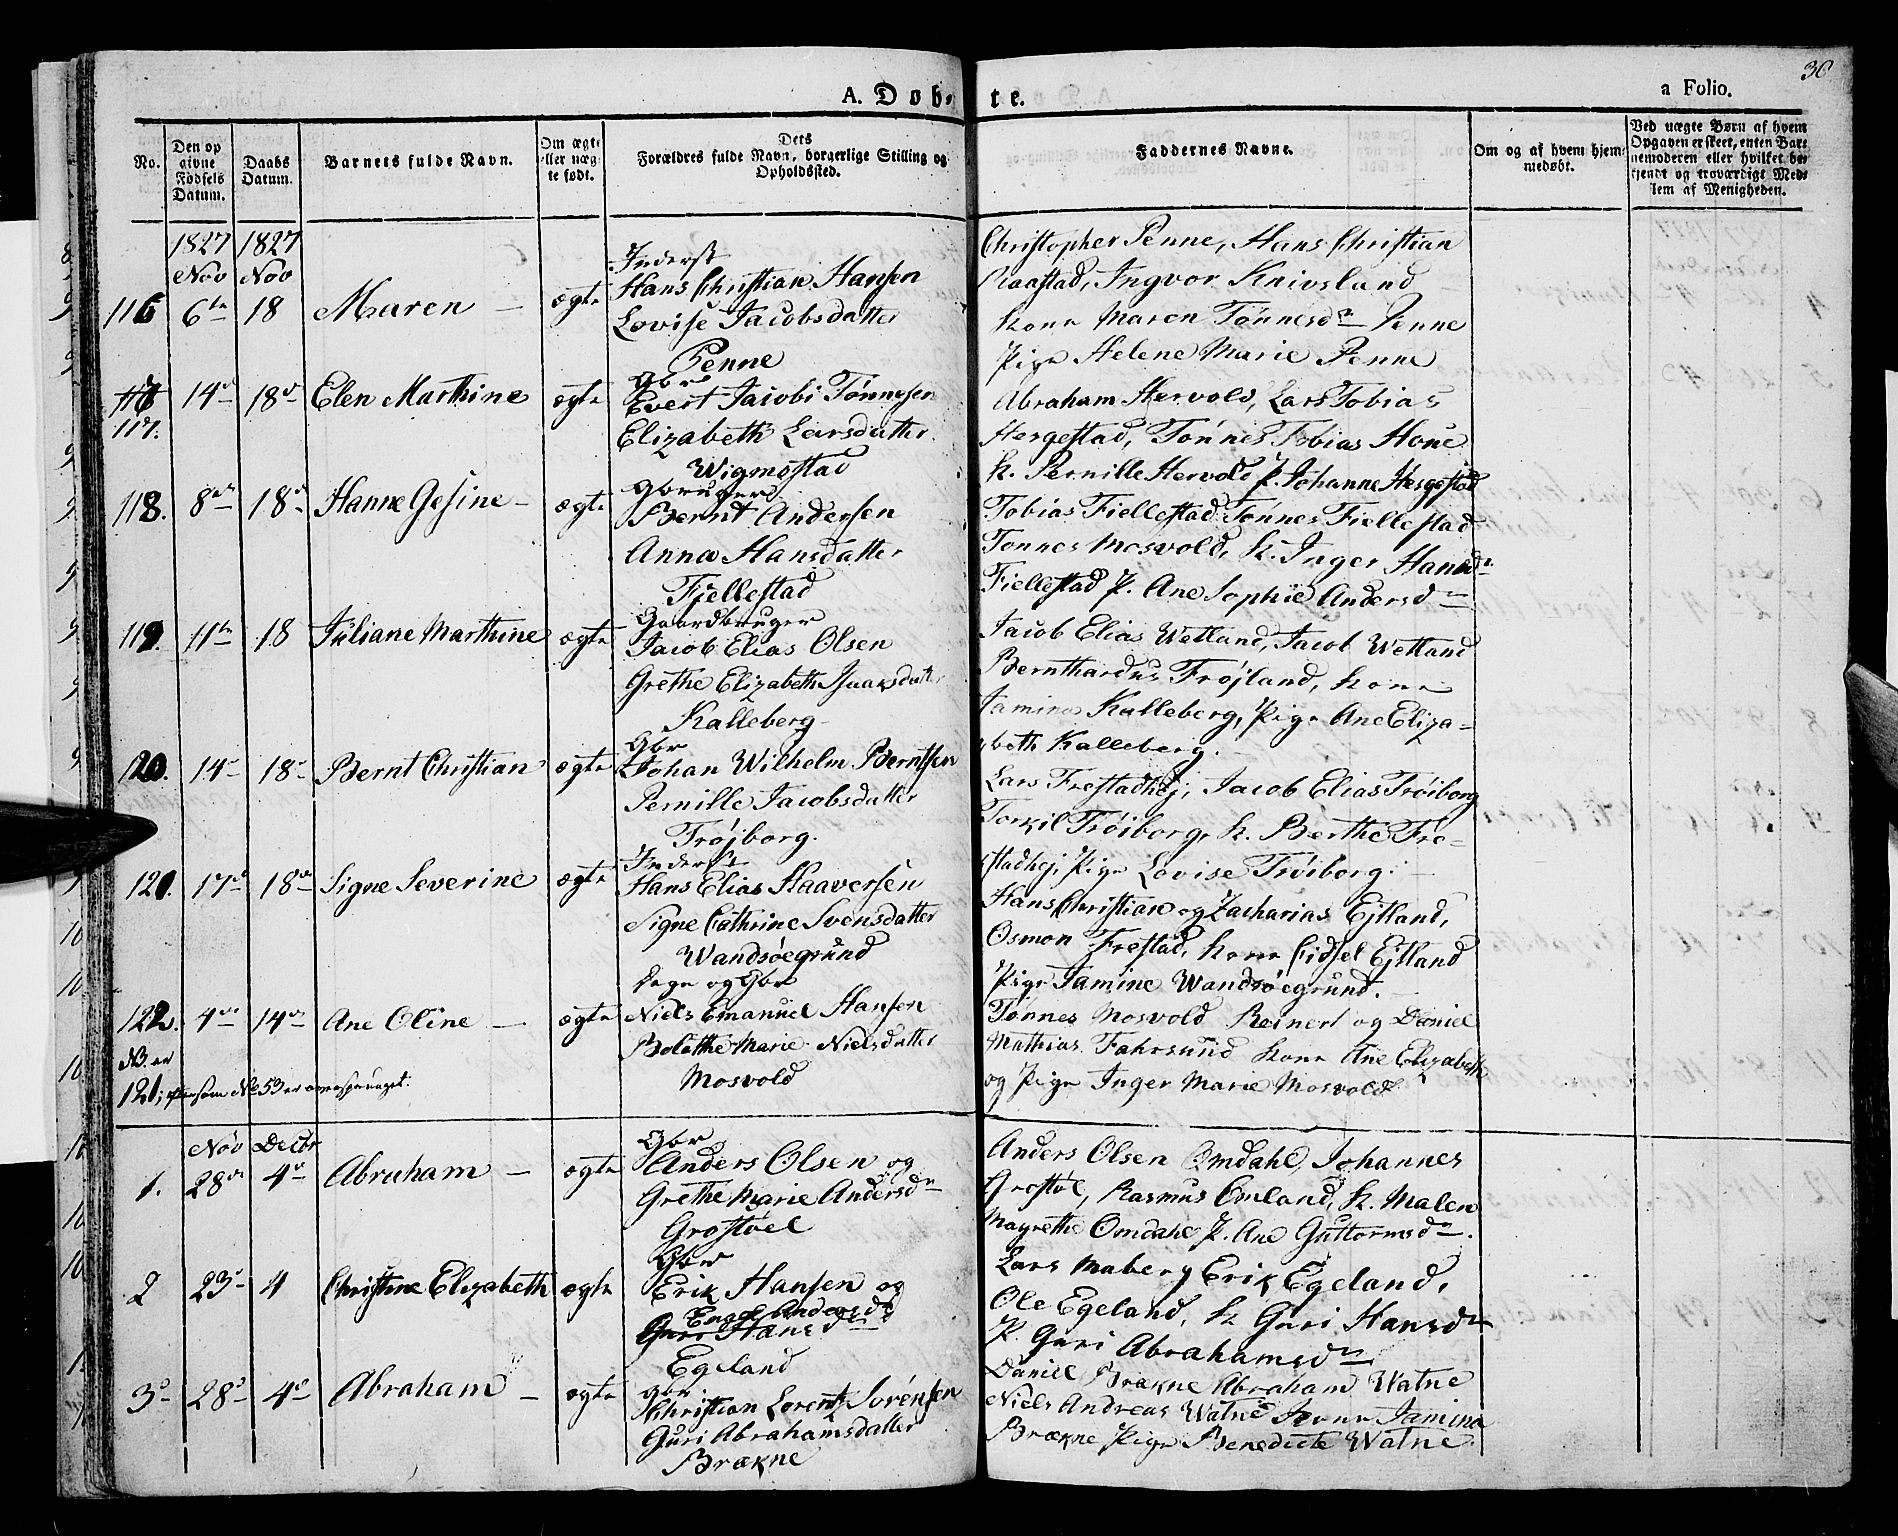 A. Døb-
te.
a Folio.
30
No.
Den op
givne
Födsels
Datum.
Daabs
Datum.
Barnets fulde Navn.
Om ægte
eller uæg-
te født.
Dets
Forældres fulde Navn, borgerlige Stilling og
Opholdssted.
Faddernes Navne.
Om og af hvem hjem-
medøbt.
Ved uægte Børn af hvem
Opgaven er skeet, enten Bar-
nemoderen eller hvilket be-
kjendt og troværdigt Med-
lem af Menigheden.
1827 1827
Nov Nov
116 6te 18 Maren - ægte
Inderst
Hans Christian Hansen
Lovise Jacobsdatter
Penne
Christopher Penne, Hans Christian
Raastad, Ingvor Knivsland
Kone Maren Tønnesdr Penne
Pige Helene Marie Penne
117. 14de 18de Elen Marthine ægte
Gbr
Evert Jacobi Tønnesen
Elizabeth Larsdatter
Wigmostad
Abraham Hervold, Lars Tobias
Hergestad, Tønnes Tobias Houe
K. Pernille Hervold P. Johanne Hergestad
118. 8de 18de Hanne Gesine - ægte
Gbruger
Bernt Andersen
Anna Hansdatter
Fjellestad
Tobias Fiellestad Tønnes Fiellestad
Tønnes Mosvold, K. Inger Hansdr
Fiellestad P. Ane Sophie Andersdr
119. 11te 18 Juliane Marthine ægte
Gaardbruger
Jacob Elias Olsen
Grethe Elizabeth Isaaksdatter
Kalleberg
Jacob Elias Wetland, Jacob Wetland
Bernthardus Frøjland, Kone
Jamina Kalleberg, Pige Ane Eliza-
beth Kalleberg.
120. 14de 18de Bernt Christian ægte
Gbr
Johan Wilhelm Berntsen
Pernille Jacobsdatter
Trøjborg.
Lars Frestadhej, Jacob Elias Trøiborg
Torkil Trøiborg, K. Berthe Fre-
stadhej, Pige Lovise Trøiborg.
121. 17de 18de Signe Severine ægte
Inderst
Hans Elias Haaversen
Signe Cathrine Svensdatter
Wandsøegrund
Hans Christian og Zacharias Ejtland,
Osmon Frestad, Kone Cidsel Ejtland
Pige Jamine Wandsøegrund.
122. 4de 14de Ane Oline - ægte
og Gbr
Niels Emanuel Hansen
Bolethe Marie Nielsdatter
Mosvold
Tønnes Mosvold Reinert og Daniel
Mathias Fahrsund Kone Ane Elizabeth
og Pige Inger Marie Mosvold
NB. er
121, eftersom No 53 er oversprunget.
Nov Decbr
1. 28de 4de Abraham - ægte
Gbr
Anders Olsen og
Grethe Marie Andersdr
Grostøel
Anders Olsen Omdahl, Johannes
Grostøl, Rasmus Omland, K. Malen
Magrethe Omdahl P. Ane Guttormsdr.
2 23de 4 Christine Elizabeth ægte
Gbr
Erik Hansen og
Engel Andersdr
Guri Hansdr
Egeland
Lars Maberg Erik Egeland,
Ole Egeland, K Guri Hansdr
P. Guri Abrahamsdr
3 28de 4de Abraham - ægte
Gbr
Christian Lorentz Sørensen
Guri Abrahamsdatter
Brækne
Daniel Brækne Abraham Watne
Niels Andreas Watne Kone Jamina
Brækne Pige Benedicte Watne